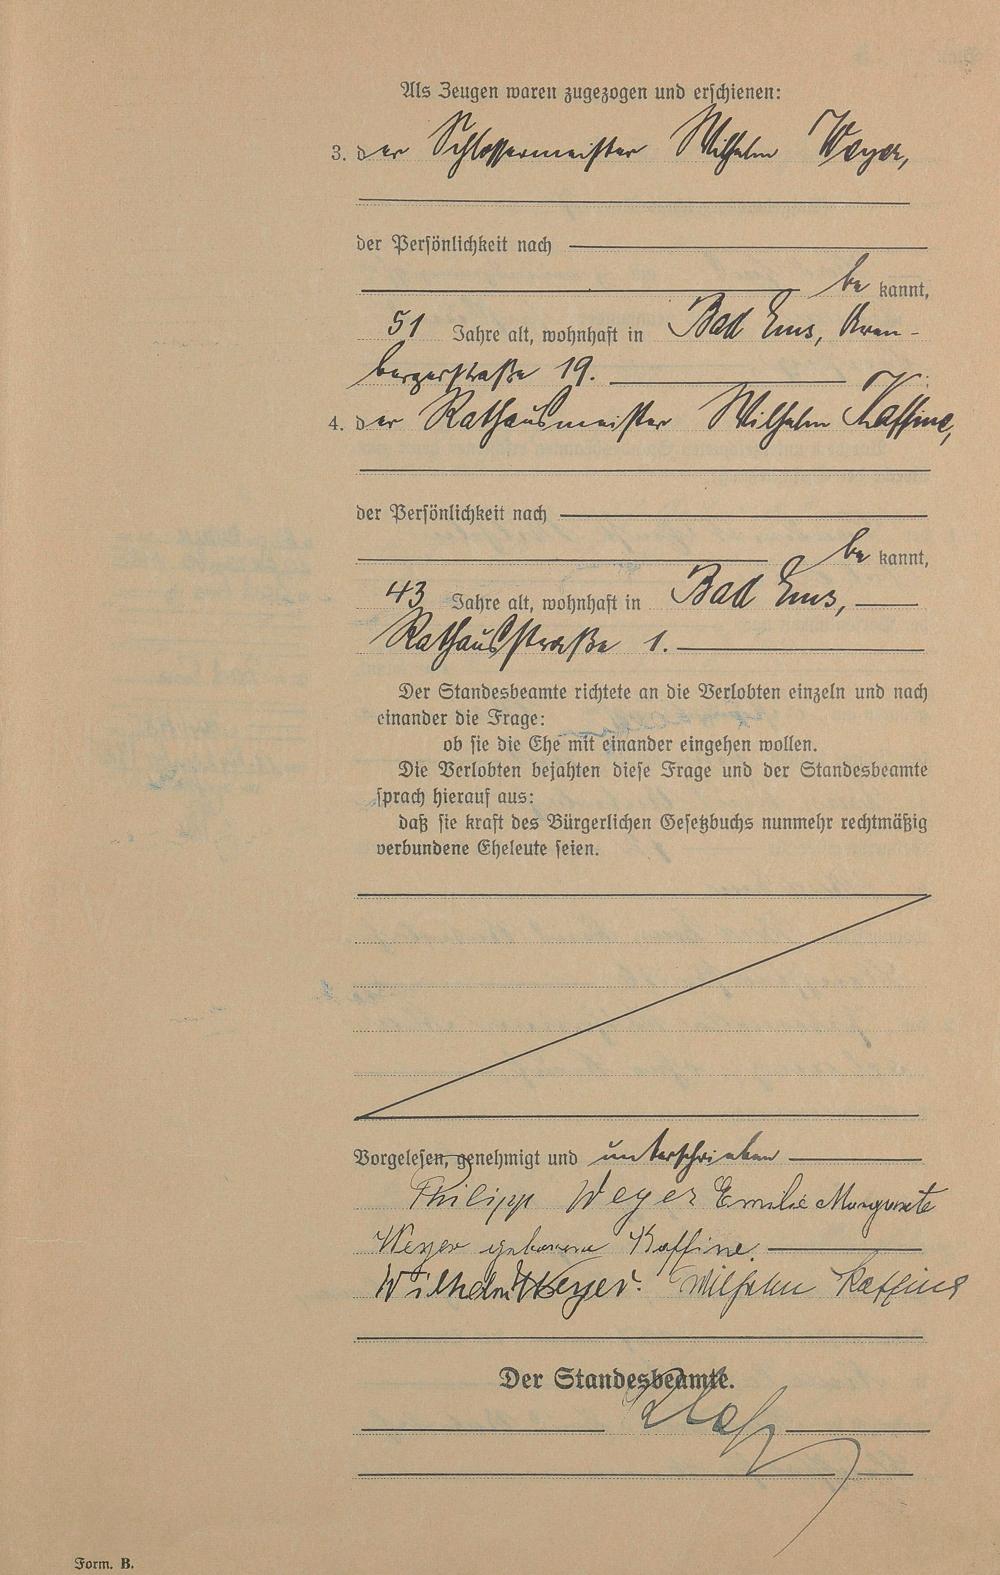 Als Zeugen waren zugezogen und erschienen:
3. der Schlossermeister Wilhelm Weyer,
der Persönlichkeit nach
be kannt,
51 Jahre alt, wohnhaft in Bad Ems, Aren-
bergerstraße 19.
4. der Rathausmeister Wilhelm Kaffine,
der Persönlichkeit nach
be kannt,
43 Jahre alt, wohnhaft in Bad Ems,
Rathausstraße 1.
Der Standesbeamte richtete an die Verlobten einzeln und nach
einander die Frage:
ob sie die Ehe mit einander eingehen wollen.
Die Verlobten bejahten diese Frage und der Standesbeamte
sprach hierauf aus:
daß sie kraft des Bürgerlichen Gesetzbuchs nunmehr rechtmäßig
verbundene Eheleute seien.
Vorgelesen, genehmigt und unterschrieben
Philipp Weyer Emilie Margarete
Weyer geborene Kaffine.
Wilhelm Weyer. Wilhelm Kaffine
Der Standesbeamte.
Form. B.